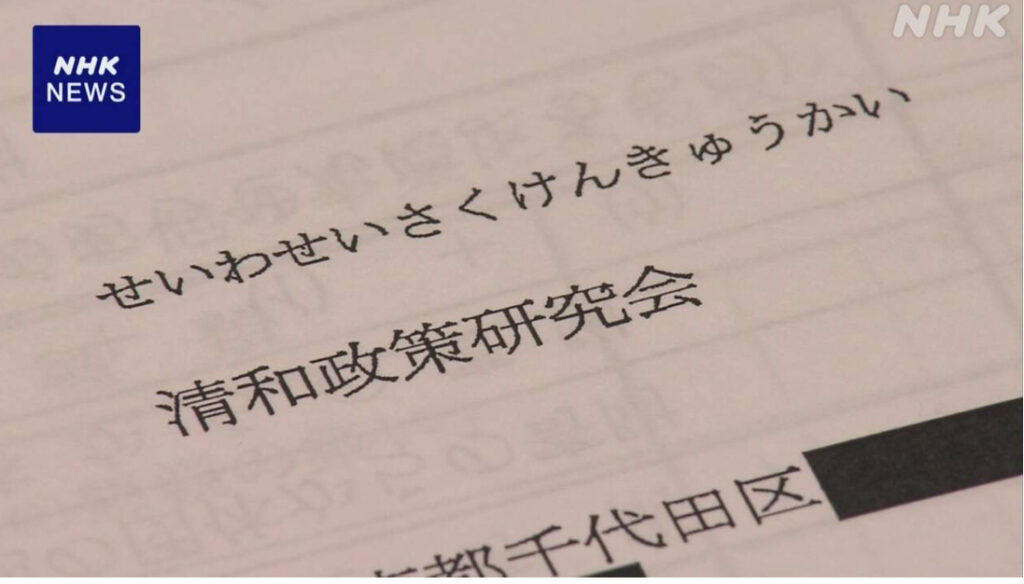 NHK
NHK
NEWS
せいわせいさくけんきゅうかい
清和政策研究会
京都千代田区